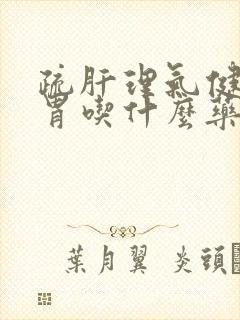 疏肝理氣健
胃喫什麼藥
葉月翼 炎頭